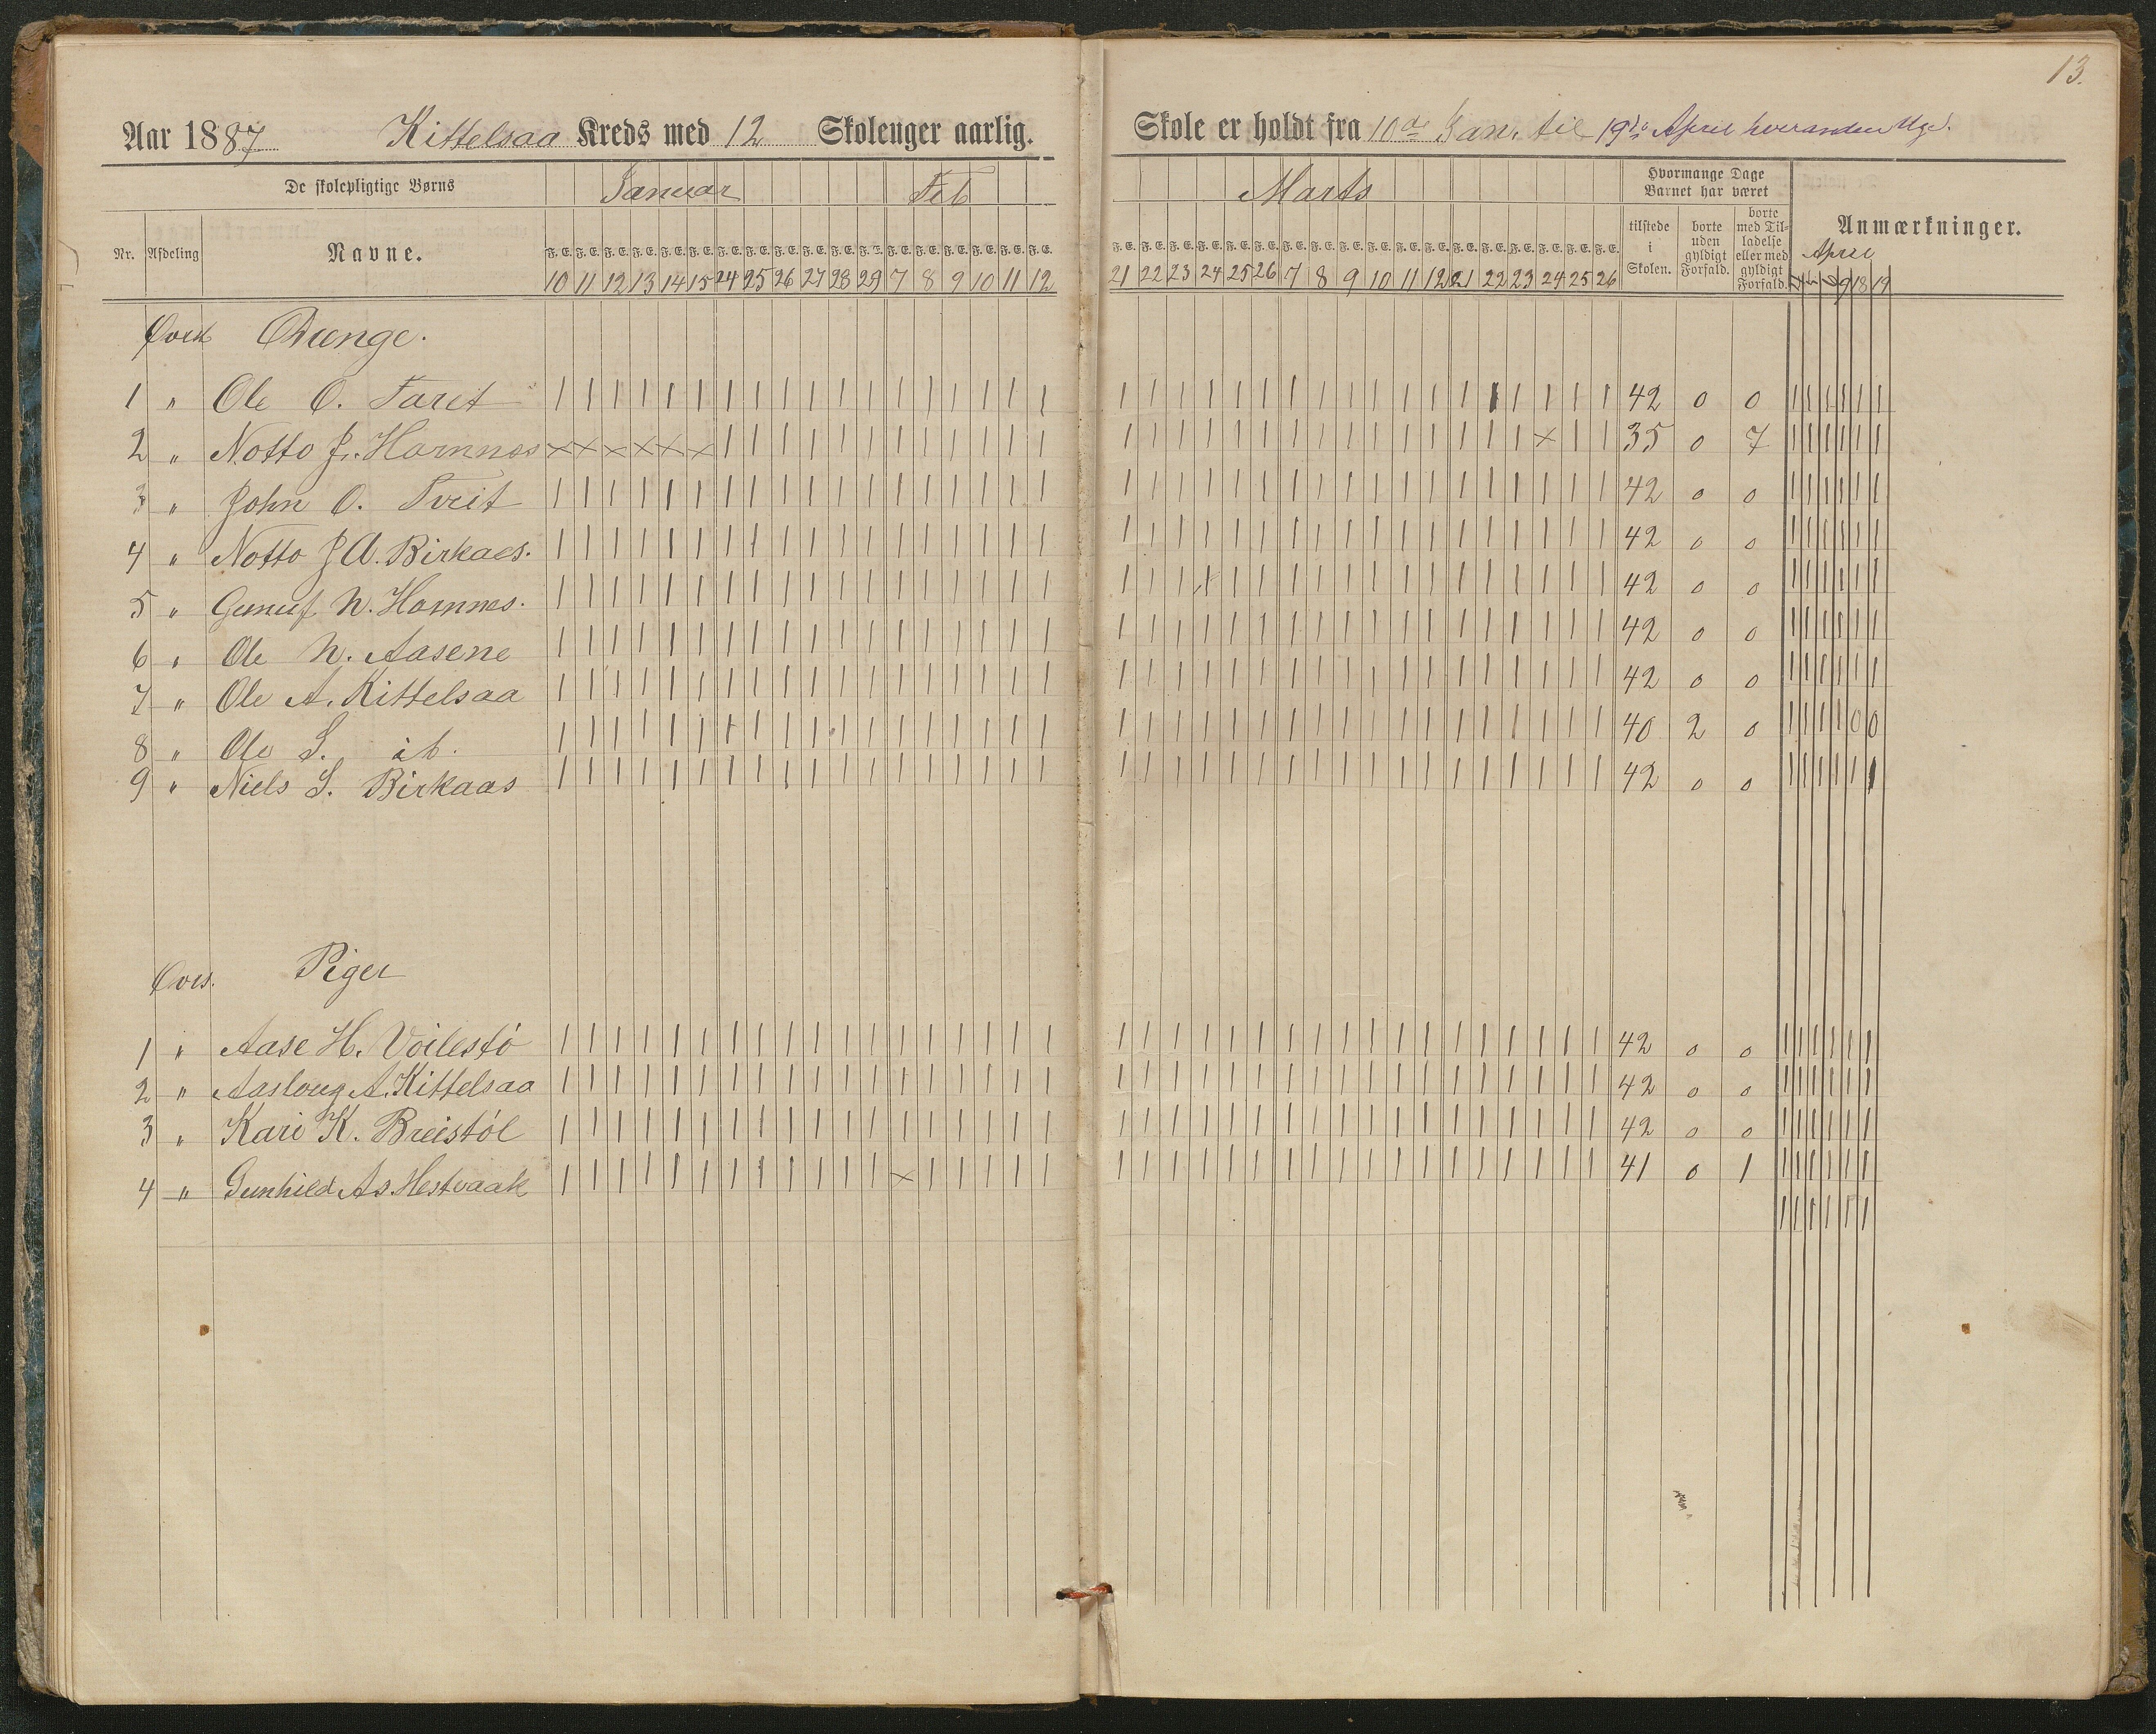 13.
Aar 1887 Kittelsaa Kreds med 12 Skoleuger aarlig. Skole er holdt fra 10de Jan. til 19de April hveranden Uge.
De skolepligtige Børns Januar Feb Marts Hvormange Dage Barnet har været
Nr. Afdeling Navne. F. E. F. E. F. E. F. E. F. E. F. E. F. E. F. E. F. E. F. E. F. E. F. E. F. E. F. E. F. E. F. E. F. E. F. E. tilstede i Skolen. borte uden gyldigt Forfald. borte med Tilladelse eller med gyldigt Forfald. Anmærkninger.
April
10 11 12 13 14 15 24 25 26 27 28 29 7 8 9 10 11 12 21 22 23 24 25 26 7 8 9 10 11 12 21 22 23 24 25 26 18 19
Drenge.
1 " Ole O. Tveit 42 0 0
2 " Notto J. Homnes × × × × × × × 35 0 7
3 " John O. Tveit 42 0 0
4 " Notto J A. Birkaas. 42 0 0
5 " Gunuf N. Homnes. 42 0 0
6 " Ole N. Aasene 42 0 0
7 " Ole A. Kittelsaa 42 0 0
8 " Ole S. ib. 40 2 0 0 0
9 " Niels S. Birkaas 42 0 0
Øvrs. Piger
1 " Aase H. Voilestö 42 0 0
2 " Aasloug A. Kittelsaa 42 0 0
3 " Kari K. Breistöl 42 0 0
4 " Gunhild As. Hestvaak × 41 0 1